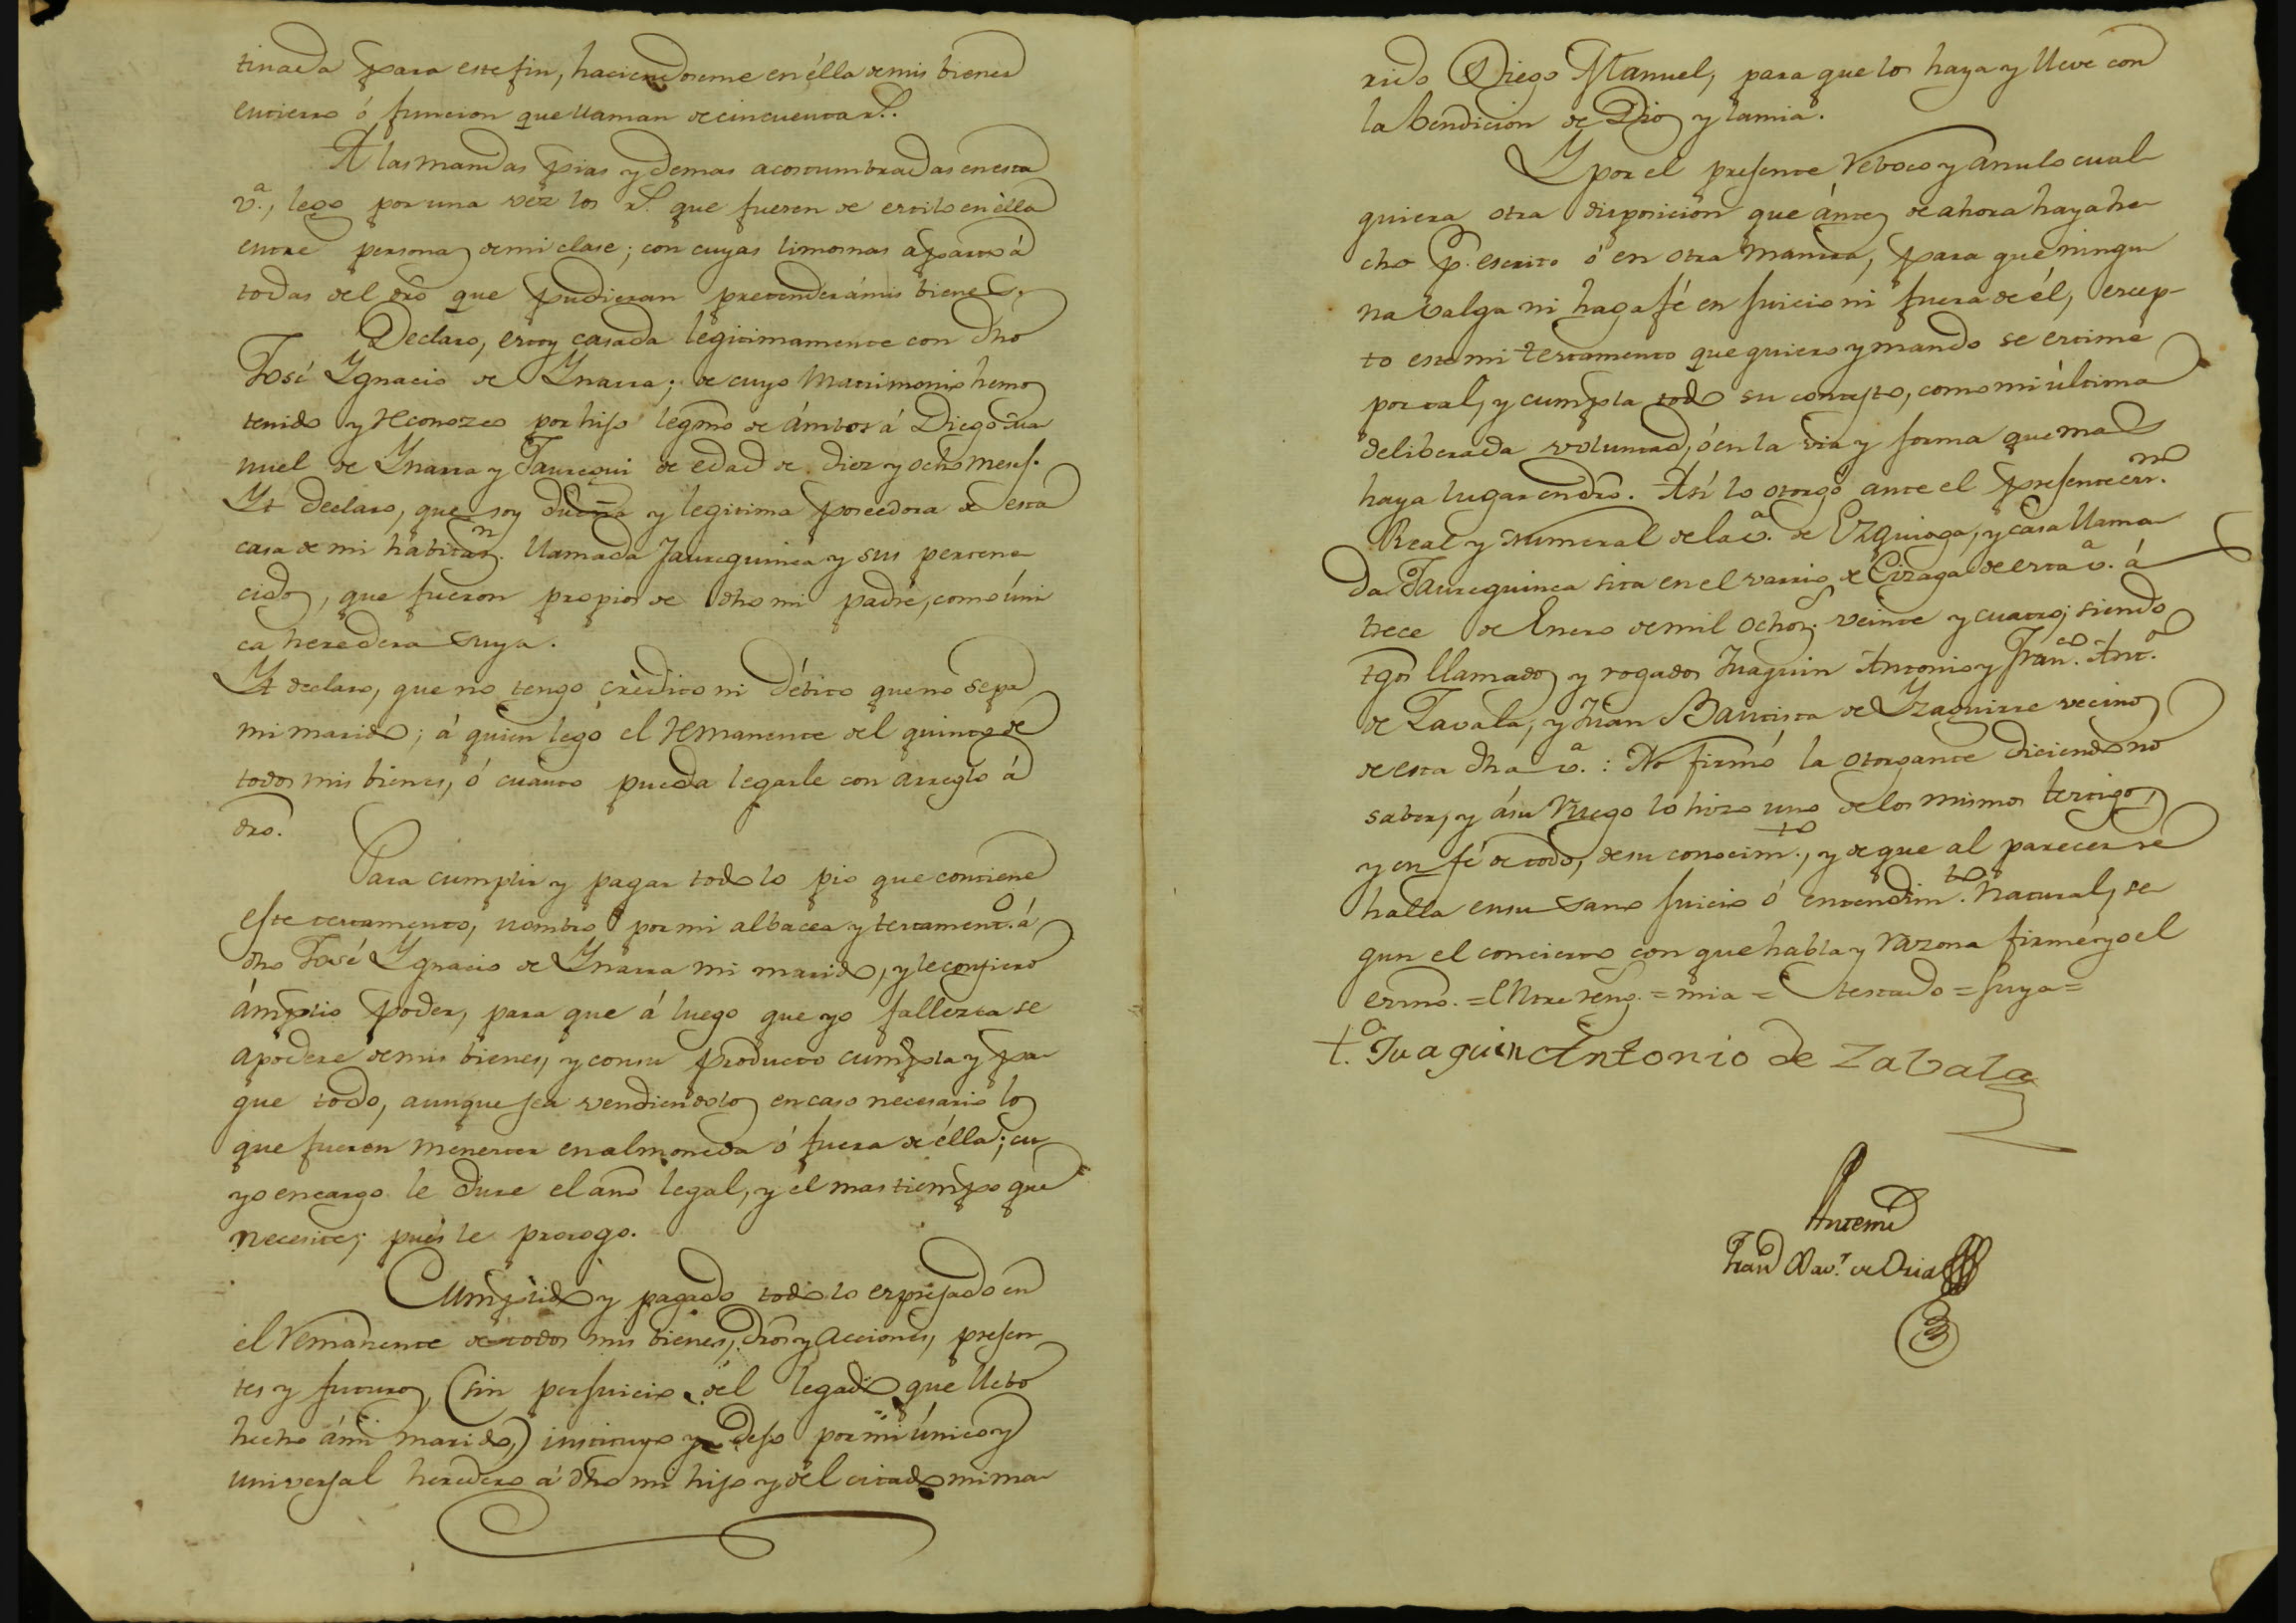 tinada para este fin, haciendoseme en élla de mis bienes
entierro ó funcion que llaman de cincuenta r.s.
A las mandas pias y demas acostumbradas en esta
v.a, lego por una véz los r.s que fueren de estilo en élla
entre personas de mi clase; con cuyas limosnas aparto á
todas del dro que pudieran pretender á mis bienes.
Declaro, estoy casada legitimamente con dho
José Ygnacio de Ynarra; de cuyo Matrimonio hemos
tenido y reconozco por hijo legmo de ámbos á Diego Ma
nuel de Ynarra y Jauregui de edad de diez y ocho meses.
Yt declaro, que soy dueña y legitima poseedora de esta
casa de mi habitaon. llamada Jaureguinea y sus pertene
cidos, que fueron propios de dho mi padre, como úni
ca heredera suya.
Yt declaro, que no tengo crédito ni débito que no sepa
mi marido; á quien lego el remanente del quinto de
todos mis bienes, ó cuanto pueda legarle con arreglo á
dro.
Para cumplir y pagar todo lo pio que contiene
este testamento, nombro por mi albacea y testament.o á
dho José Ygnacio de Ynarra mi marido, y le confiero
ámplio poder, para que á luego que yo fallezca se
apodere de mis bienes, y con su producto cumpla y pa
gue todo, aunque sea vendiendo los en caso necesario los
que fueren menester en almoneda ó fuera de élla; cu
yo encargo le dure el año legal, y el mas tiempo que
necesite; pués le prorogo.
Cumplido y pagado todo lo expresado en
el remanente de todos mis bienes, dros y acciones, presen
tes y futuros, (sin perjuicio del legado que llebo
hecho á mi marido,) instituyo y dejo por mi único y
universal heredero á dho mi hijo y del citado mi ma
rido Diego Manuel, para que los haya y lleve con
la bendicion de Dios y la mia.
Y por el presente reboco y anulo cual
quiera otra disposicion que ántes de ahora haya he
cho p.r escrito ó en otra manera, para que ningu
na valga ni haga fé en juicio ni fuera de él, excep-
to este mi testamento que quiero y mando se estime
por tal, y cumpla todo su contesto, como mi última
deliberada voluntad, ó en la via y forma que mas
haya lugar en dro. Así lo otorgo ante el presente esc.no
Real y numeral de la v.a de Ezquioga, y casa llama
da Jaureguinea sita en el varrio de Eizaga de esta v.a á
trece de Enero de mil ochos. veinte y cuatro; siendo
tgos llamados y rogados Juaquin Antonio y Fran.co Ant.o
de Zavala, y Juan Bautista de Yzaguirre vecinos
de esta dha v.a: No firmó la otorgante diciendo no
saber, y á su ruego lo hizo uno de los mismos testigos,
y en fé de todo, de su conocim.to, y de que al parecer se
halla en su sano juicio ó entendim.to natural, se
gun el concierto con que habla y razona firmé yo el
esnno. = Entre reng.s = mia = testado = suya =
t.o Juaquin Antonio de Zabala
Ante mi